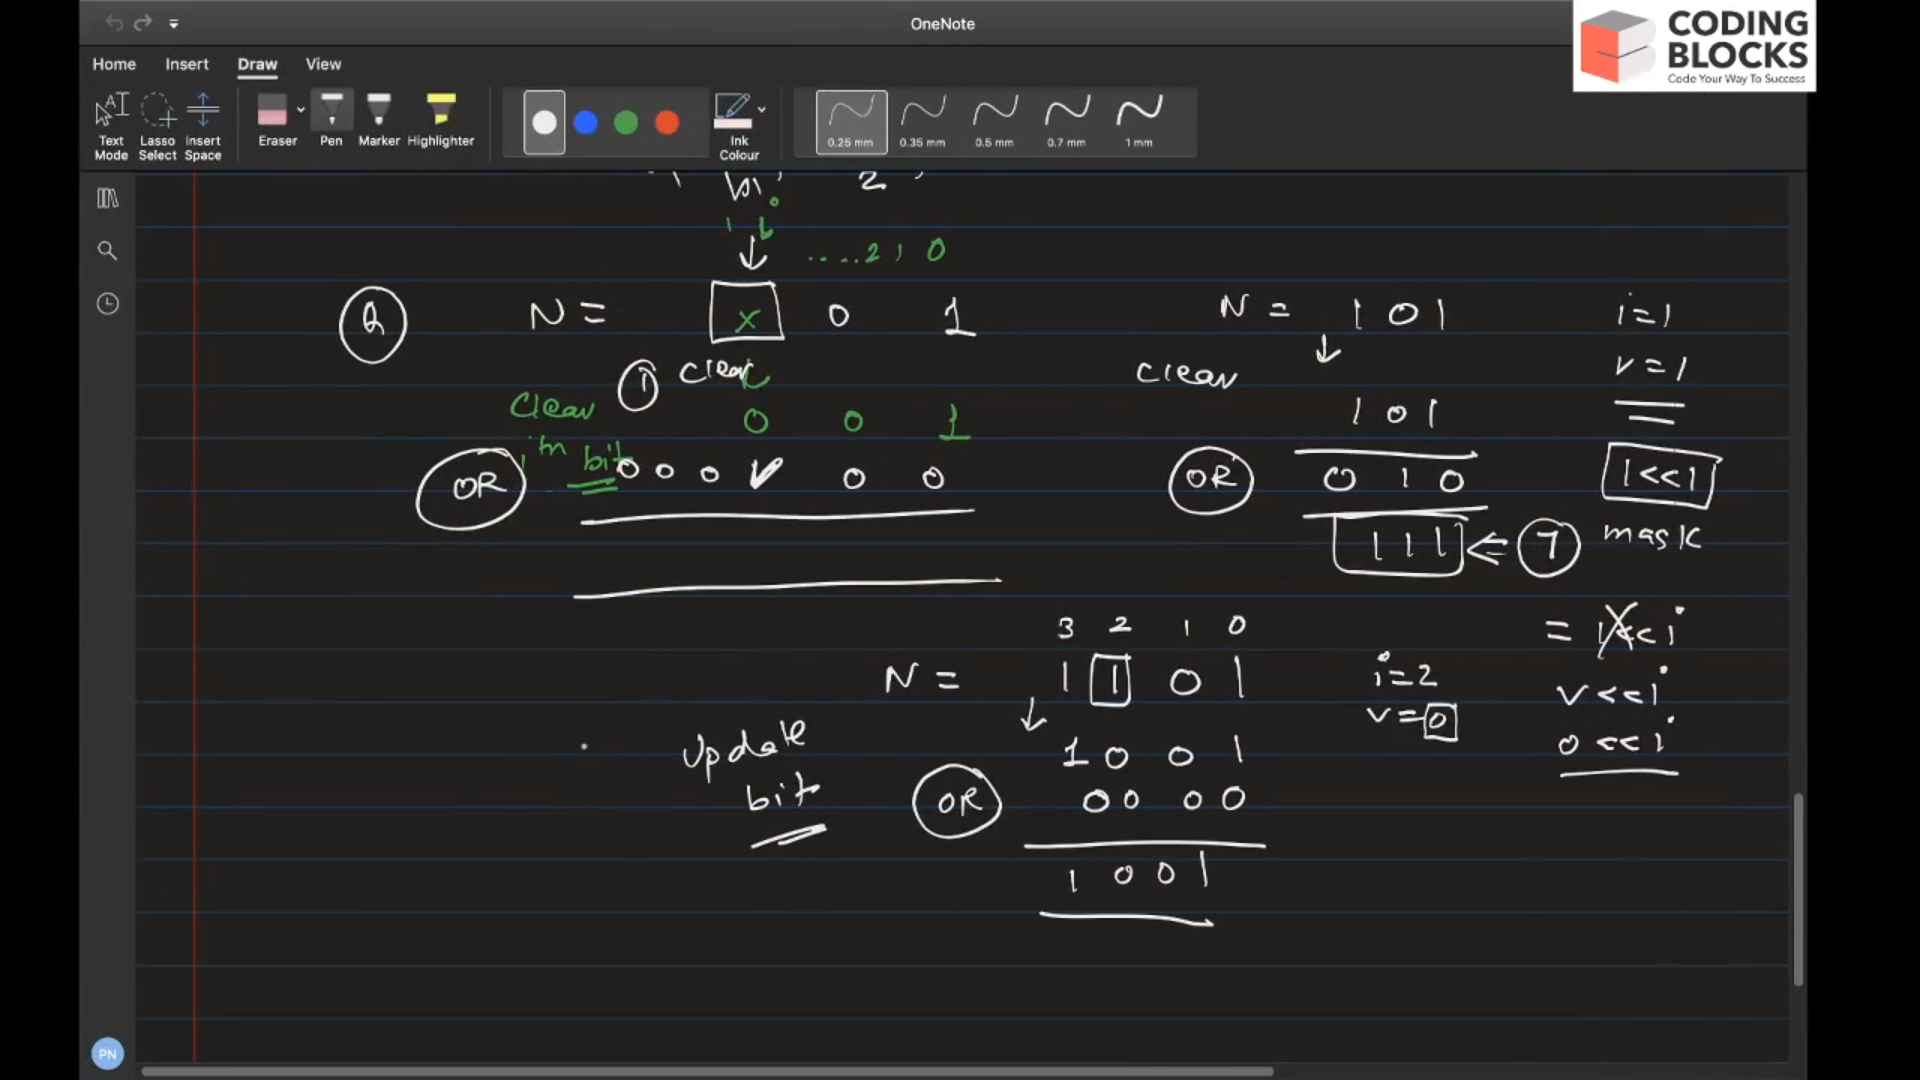 OneNote
CODING
BLOCKS
Code Your Way To Success
Home Insert Draw View
Text Mode
Lasso Select
Insert Space
Eraser
Pen
Marker
Highlighter
Ink Colour
0.25 mm
0.35 mm
0.5 mm
0.7 mm
1 mm
2
....2 1 0
N = x 0 1
① clear
clear
ith bit
0 0 1
OR 0 0 0 v 0 0
N = 1 0 1
i=1
v=1
clear
1 0 1
OR 0 1 0
1<<1
mask
1 1 1 ⇐ 7
= 1<<i
v<<i
0<<i
3 2 1 0
N = 1 1 0 1
i=2
v=0
update
bit
1 0 0 1
OR 0 0 0 0
1 0 0 1
PN